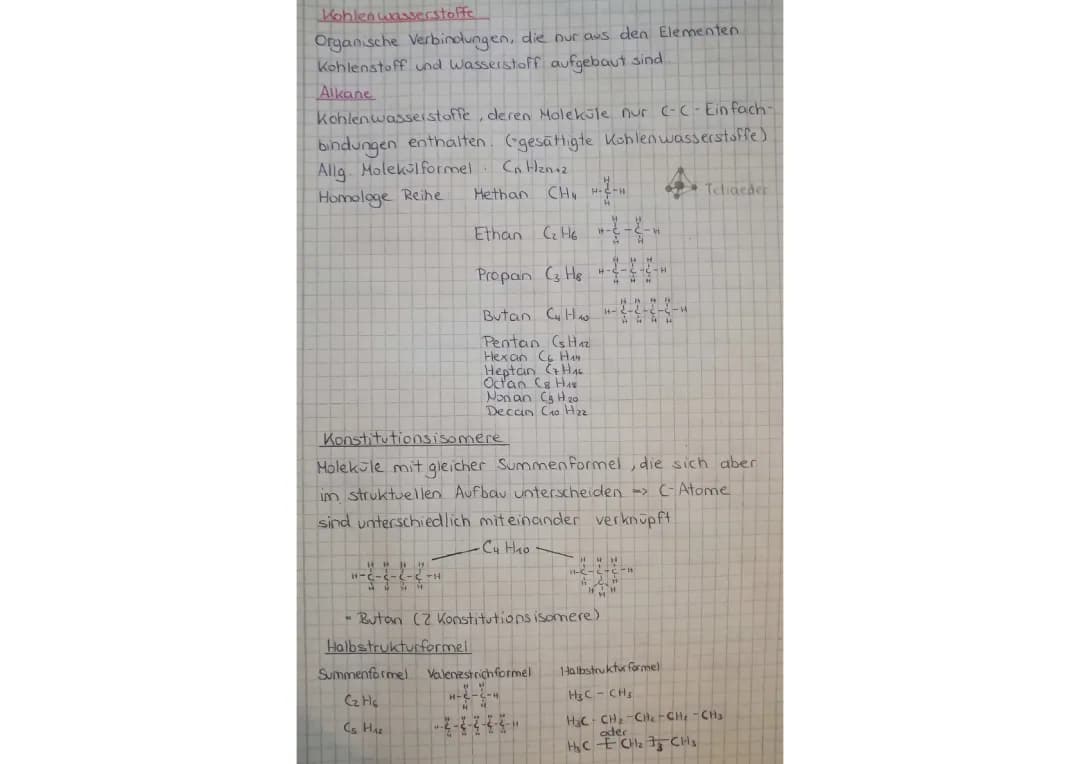 Kohlenwasserstoffe
Organische Verbindungen, die nur aus den Elementen
Kohlenstoff und Wasserstoff aufgebaut sind
Alkane
Kohlenwasserstoffe, deren Moleküle nur C-C-Einfach-
bindungen enthalten. (gesättigte Kohlenwasserstoffe)
Allg. Molekülformel: CnH2n+2
Homologe Reihe Methan CH4 Tetraeder
Ethan C2H6
Propan C3H8
Butan C4H10
Pentan C5H12
Hexan C6H14
Heptan C7H16
Octan C8H18
Nonan C9H20
Decan C10H22
Konstitutionsisomere
Moleküle mit gleicher Summenformel, die sich aber
im struktuellen Aufbau unterscheiden => C-Atome
sind unterschiedlich miteinander verknüpft
C4H10
- Butan (2 Konstitutionsisomere)
Halbstrukturformel
Summenformel Valenzstrichformel Halbstrukturformel
C2H6 H3C-CH3
C5H12 H3C-CH2-CH2-CH2-CH3
oder
H3C-[CH2]3-CH3